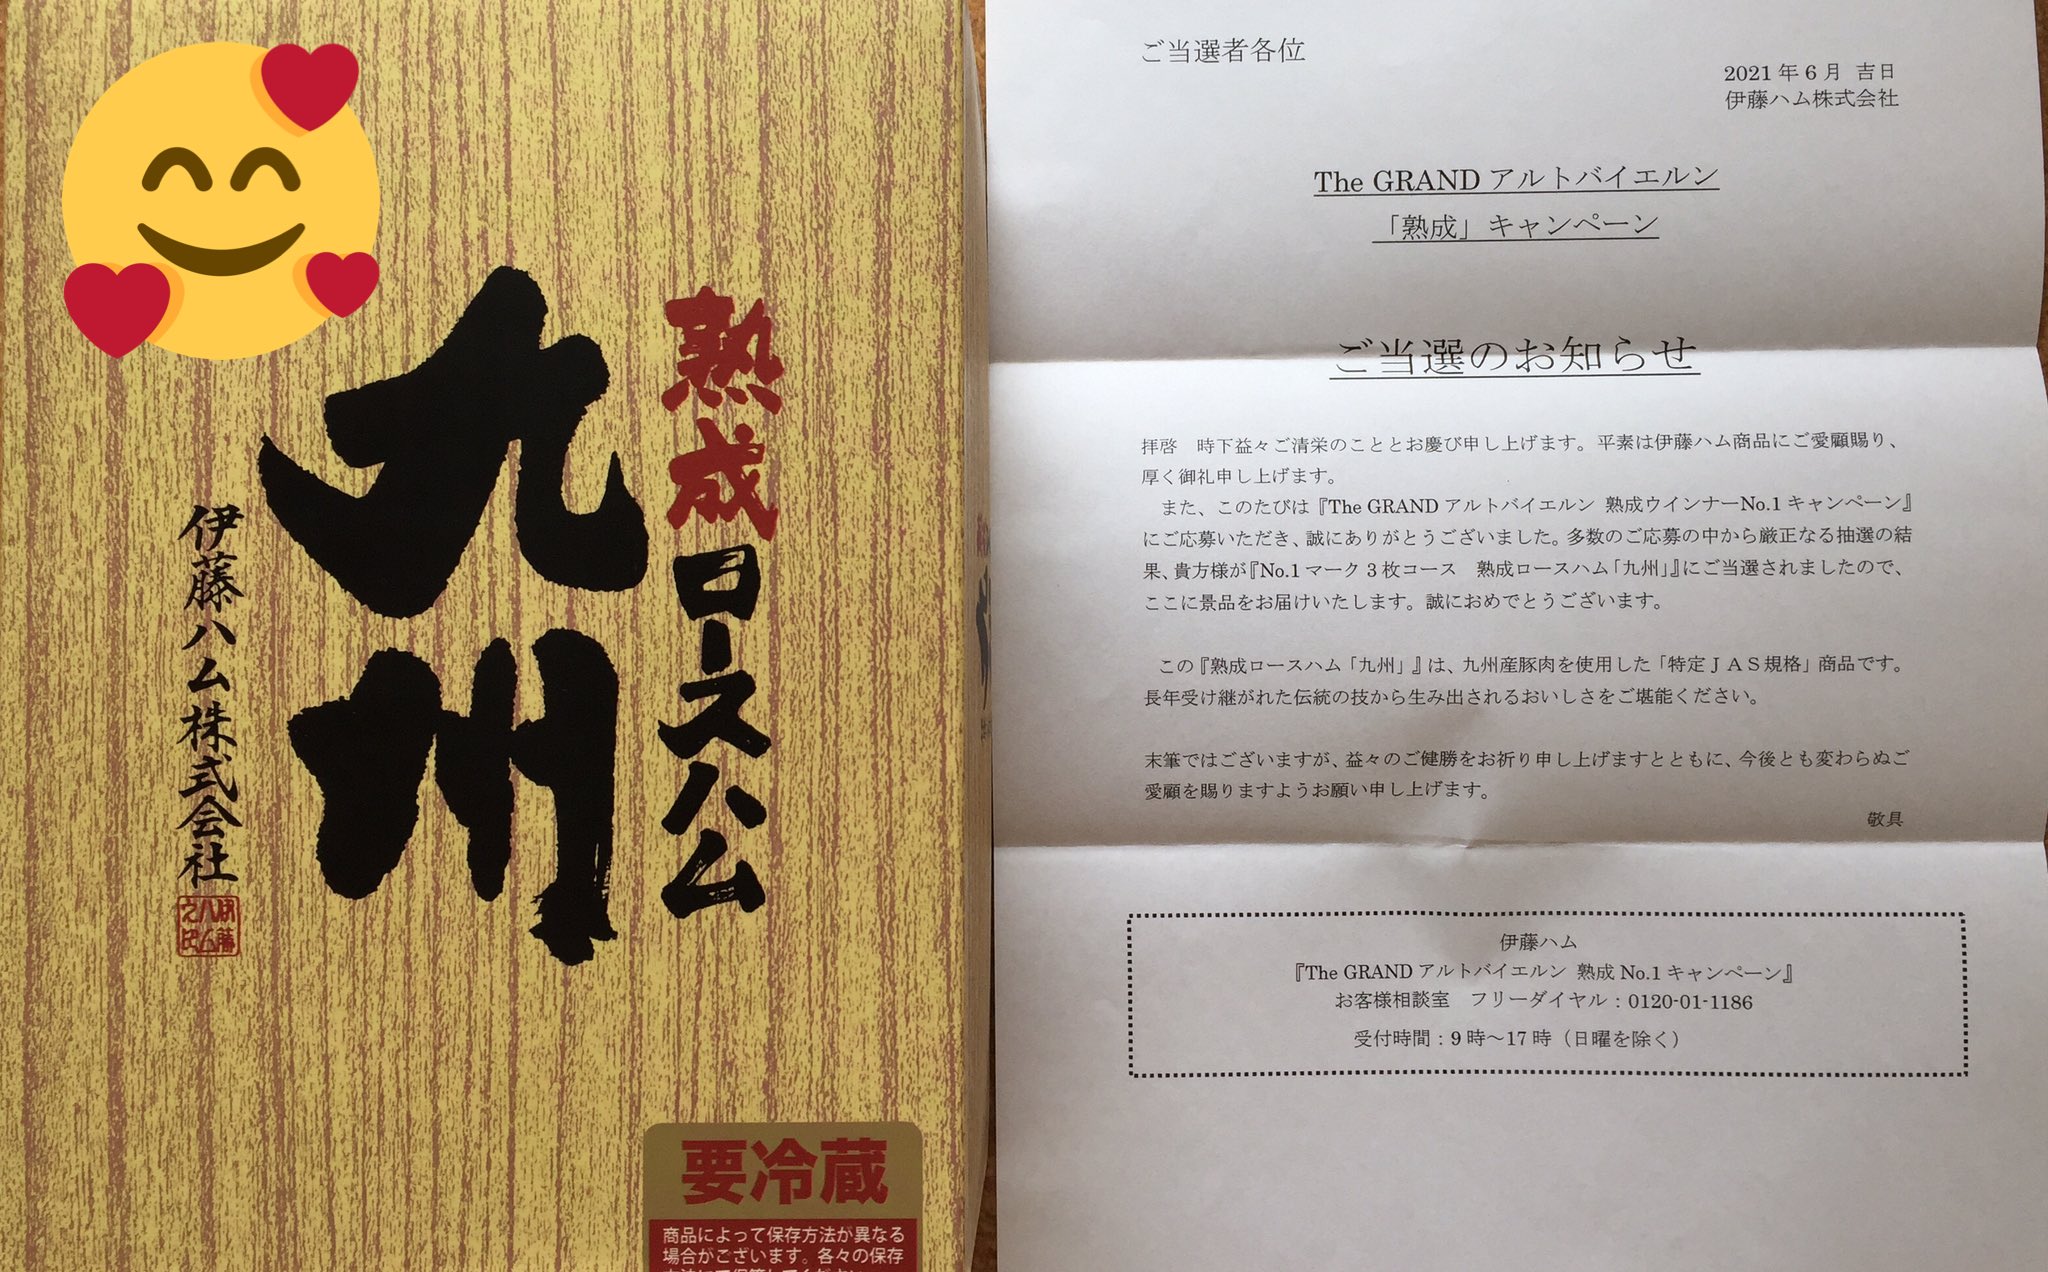 熟成ロースハム
九州
伊藤ハム株式会社
要冷蔵
商品によって保存方法が異なる
場合がございます。各々の保存
ご当選者各位
2021年6月 吉日
伊藤ハム株式会社
The GRAND アルトバイエルン
「熟成」キャンペーン
ご当選のお知らせ
拝啓　時下益々ご清栄のこととお慶び申し上げます。平素は伊藤ハム商品にご愛顧賜り、
厚く御礼申し上げます。
また、このたびは『The GRAND アルトバイエルン 熟成ウインナーNo.1 キャンペーン』
にご応募いただき、誠にありがとうございました。多数のご応募の中から厳正なる抽選の結
果、貴方様が『No.1 マーク 3 枚コース　熟成ロースハム「九州」』にご当選されましたので、
ここに景品をお届けいたします。誠におめでとうございます。
この『熟成ロースハム「九州」』は、九州産豚肉を使用した「特定ＪＡＳ規格」商品です。
長年受け継がれた伝統の技から生み出されるおいしさをご堪能ください。
末筆ではございますが、益々のご健勝をお祈り申し上げますとともに、今後とも変わらぬご
愛顧を賜りますようお願い申し上げます。
敬具
伊藤ハム
『The GRAND アルトバイエルン 熟成 No.1 キャンペーン』
お客様相談室　フリーダイヤル：0120-01-1186
受付時間：9 時～17 時（日曜を除く）